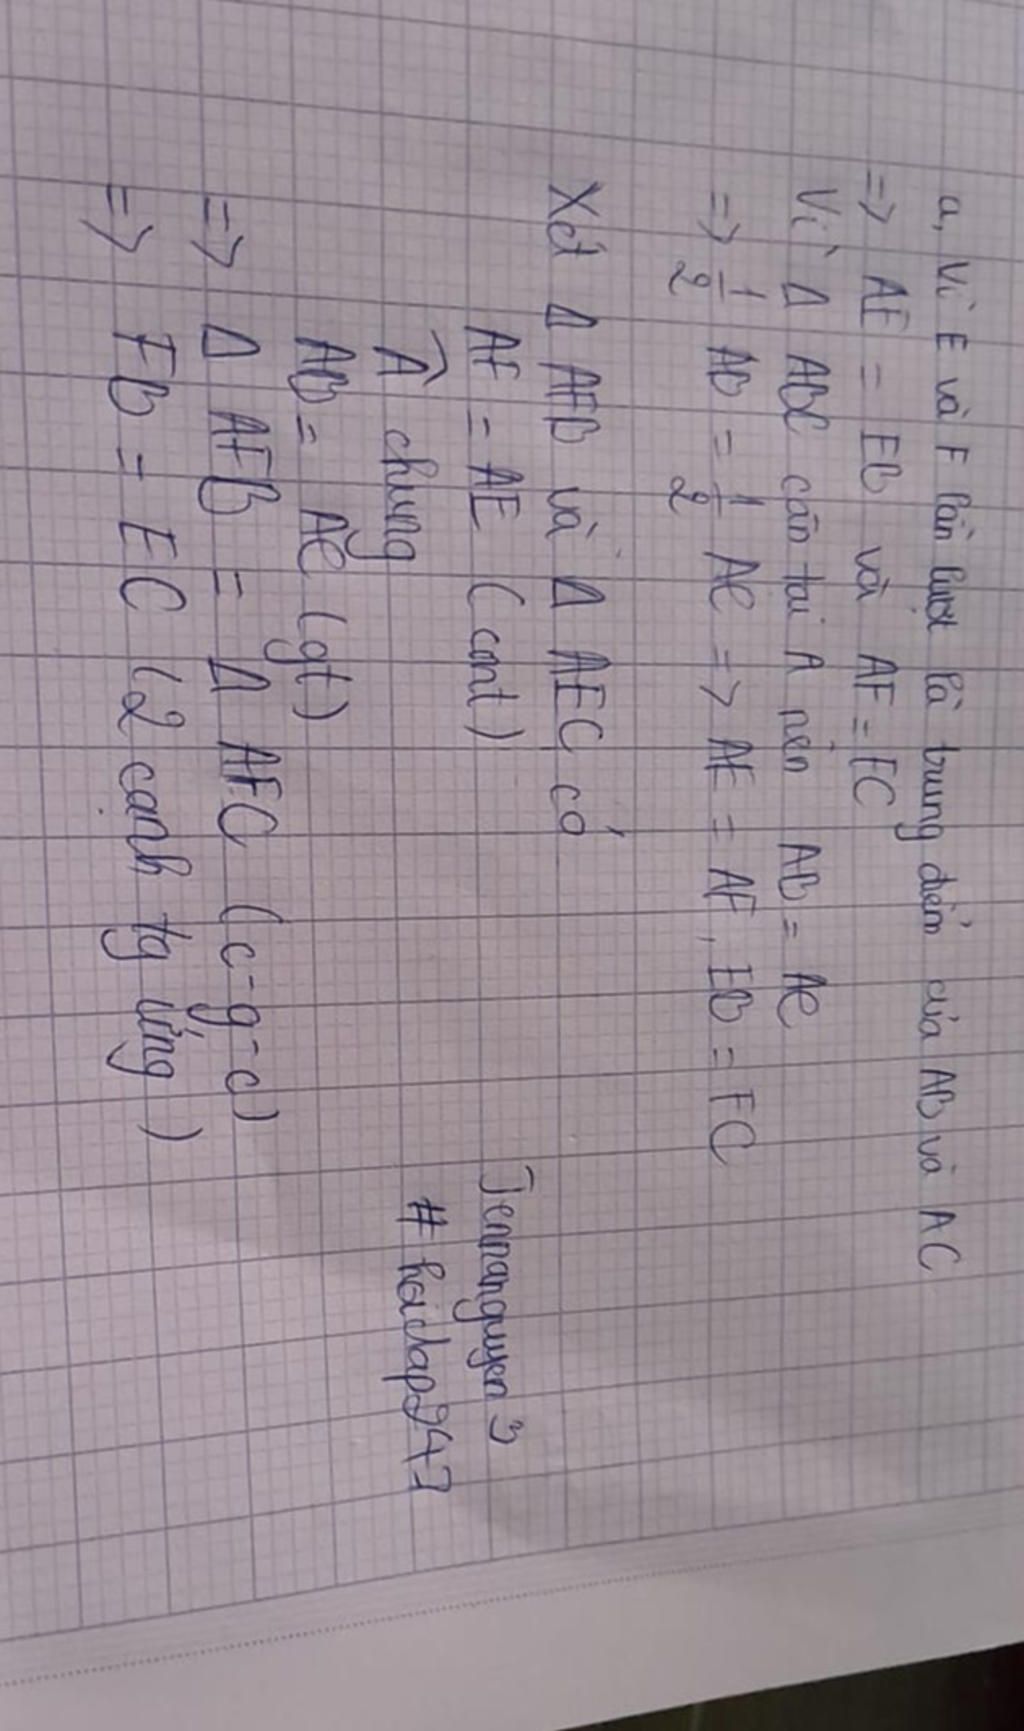 a, Vì E và F lần lượt là trung điểm của AB và AC
=> AE = EB và AF = FC
Vì Δ ABC cân tại A nên AB = AC
=> 1/2 AB = 1/2 AC => AE = AF, EB = FC
Xét Δ AFB và Δ AEC có
AF = AE (cmt)
Â chung
AB = AC (gt)
=> Δ AFB = Δ AEC (c-g-c)
=> FB = EC (2 cạnh tg ứng)
Jennanguyen3
#hoidap247